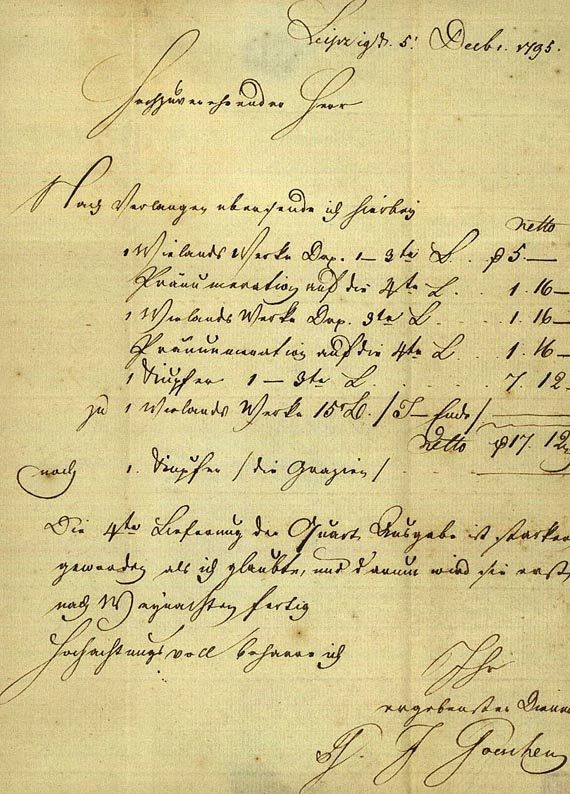 Leipzig d. 5. Decbr. 1795.
Hochzuverehrender Herr
Nach Verlangen übersende ich hierbey
netto
1 Wielands Werke Drp. 1 — 3te L. 5 —
Pränumeration auf die 4te L. . 1. 16 —
1 Wielands Werke Drp. 3te L. . . 1. 16 —
Pränumeration auf die 4te L . 1. 16 —
1 Kupfer 1 — 3te L. . . . 7. 12 —
zu 1 Wielands Werke 15 / Ende /
netto 17. 12
noch 1. Kupfer / die Grazien /
Die 4te Lieferung der Quart Ausgabe ist starker
geworden als ich glaubte, und darum wird sie erst
nach Weynachten fertig
Hochachtungsvoll beharre ich
Ihr
ergebenster Diener
G. J Goeschen